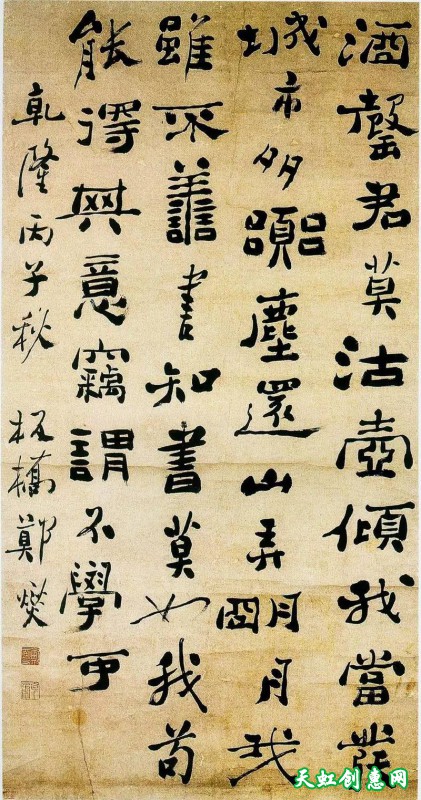 酒罄君莫沽壺傾我當發
城市多囂塵還山弄朙月我
雖不善書知書莫如我苟
能得其意竊謂不學可
乾隆丙子秋 板橋鄭燮
天虹创惠网